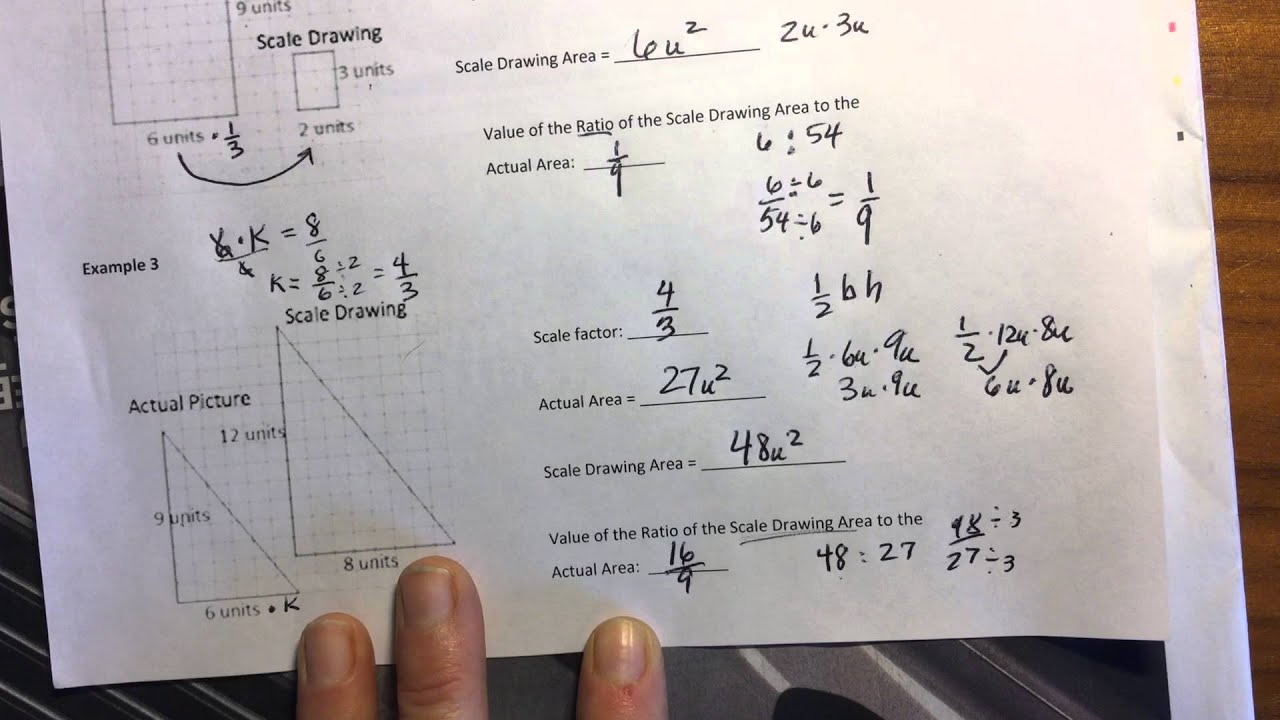 9 units
Scale Drawing
3 units
6 units · 1/3
2 units
Scale Drawing Area = 6u² 2u·3u
Value of the Ratio of the Scale Drawing Area to the
Actual Area: 1/9
6 : 54
6÷6/54÷6 = 1/9
Example 3
6·K/6 = 8/6
K = 8÷2/6÷2 = 4/3
Scale Drawing
Actual Picture
12 units
9 units
8 units
6 units · K
Scale factor: 4/3
1/2 bh
Actual Area = 27u²
1/2·6u·9u
3u·9u
1/2·12u·8u
6u·8u
Scale Drawing Area = 48u²
Value of the Ratio of the Scale Drawing Area to the
Actual Area: 16/9
48 : 27
48÷3/27÷3